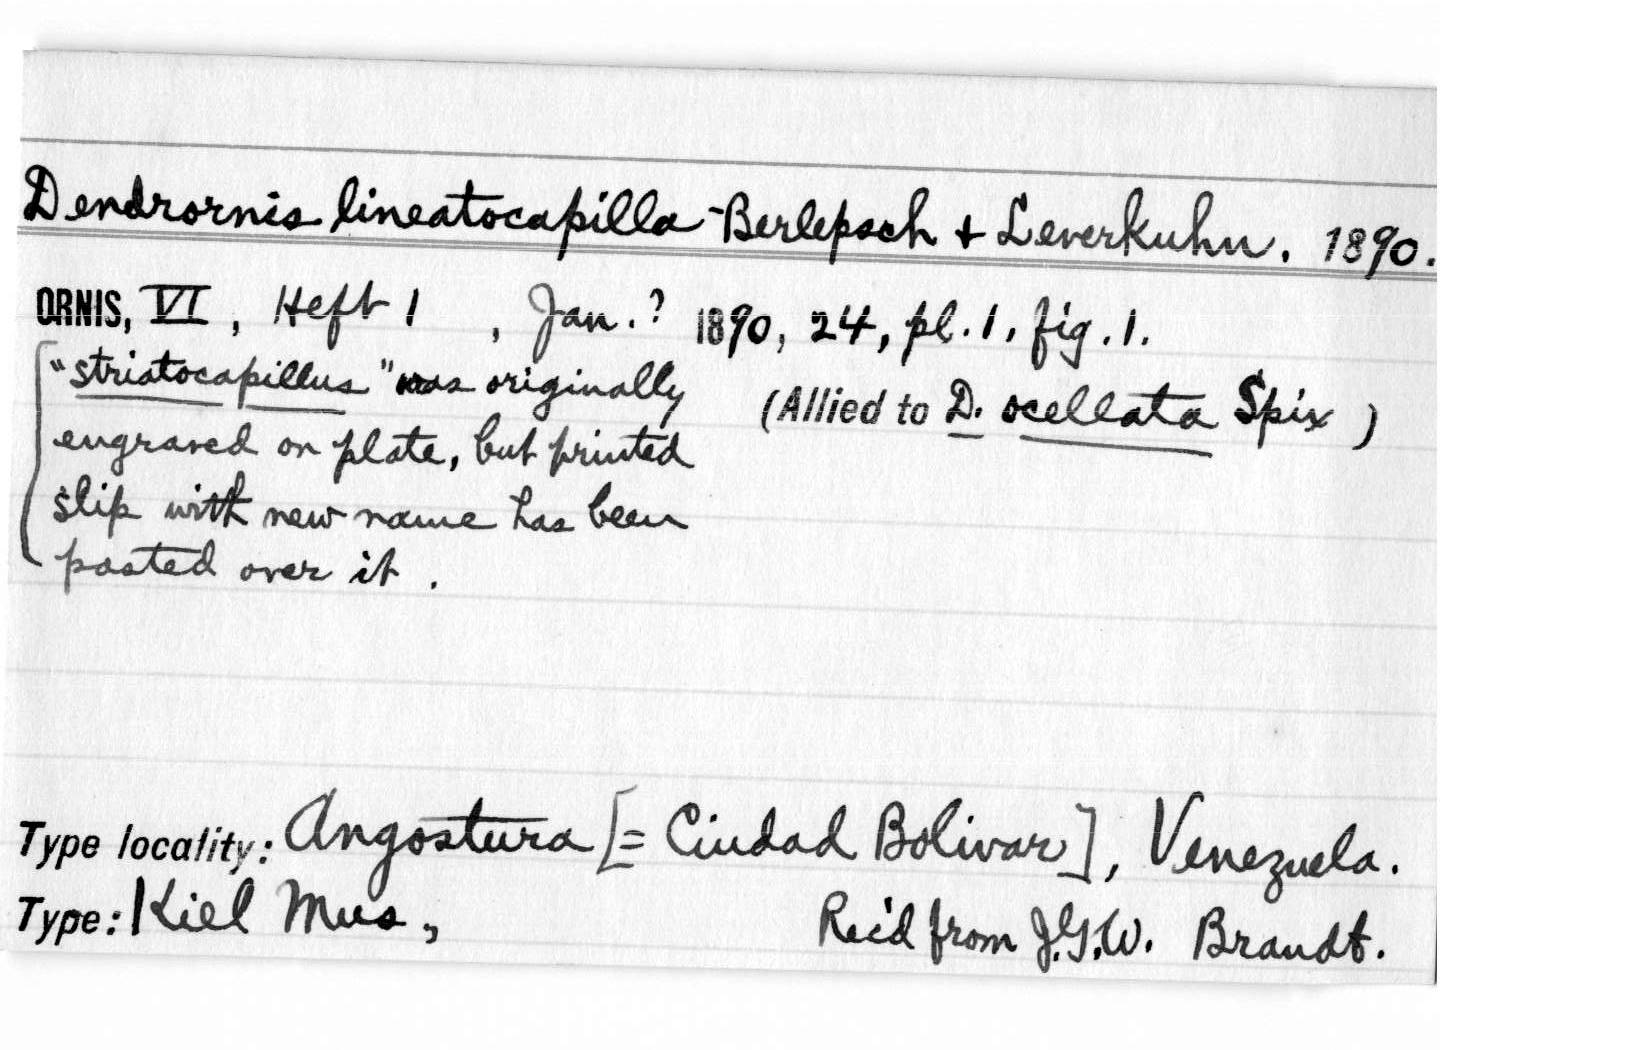 Dendrornis lineatocapilla - Berlepsch + Leverkuhn. 1890.
ORNIS, VI, Heft 1 , Jan.? 1890, 24, pl. 1, fig. 1.
"striatocapillus" was originally
(Allied to D. ocellata Spix)
engraved on plate, but printed
slip with new name has been
pasted over it.
Type locality: Angostura [= Ciudad Bolivar], Venezuela.
Type: Kiel Mus., Rec'd from J.G.W. Brandt.